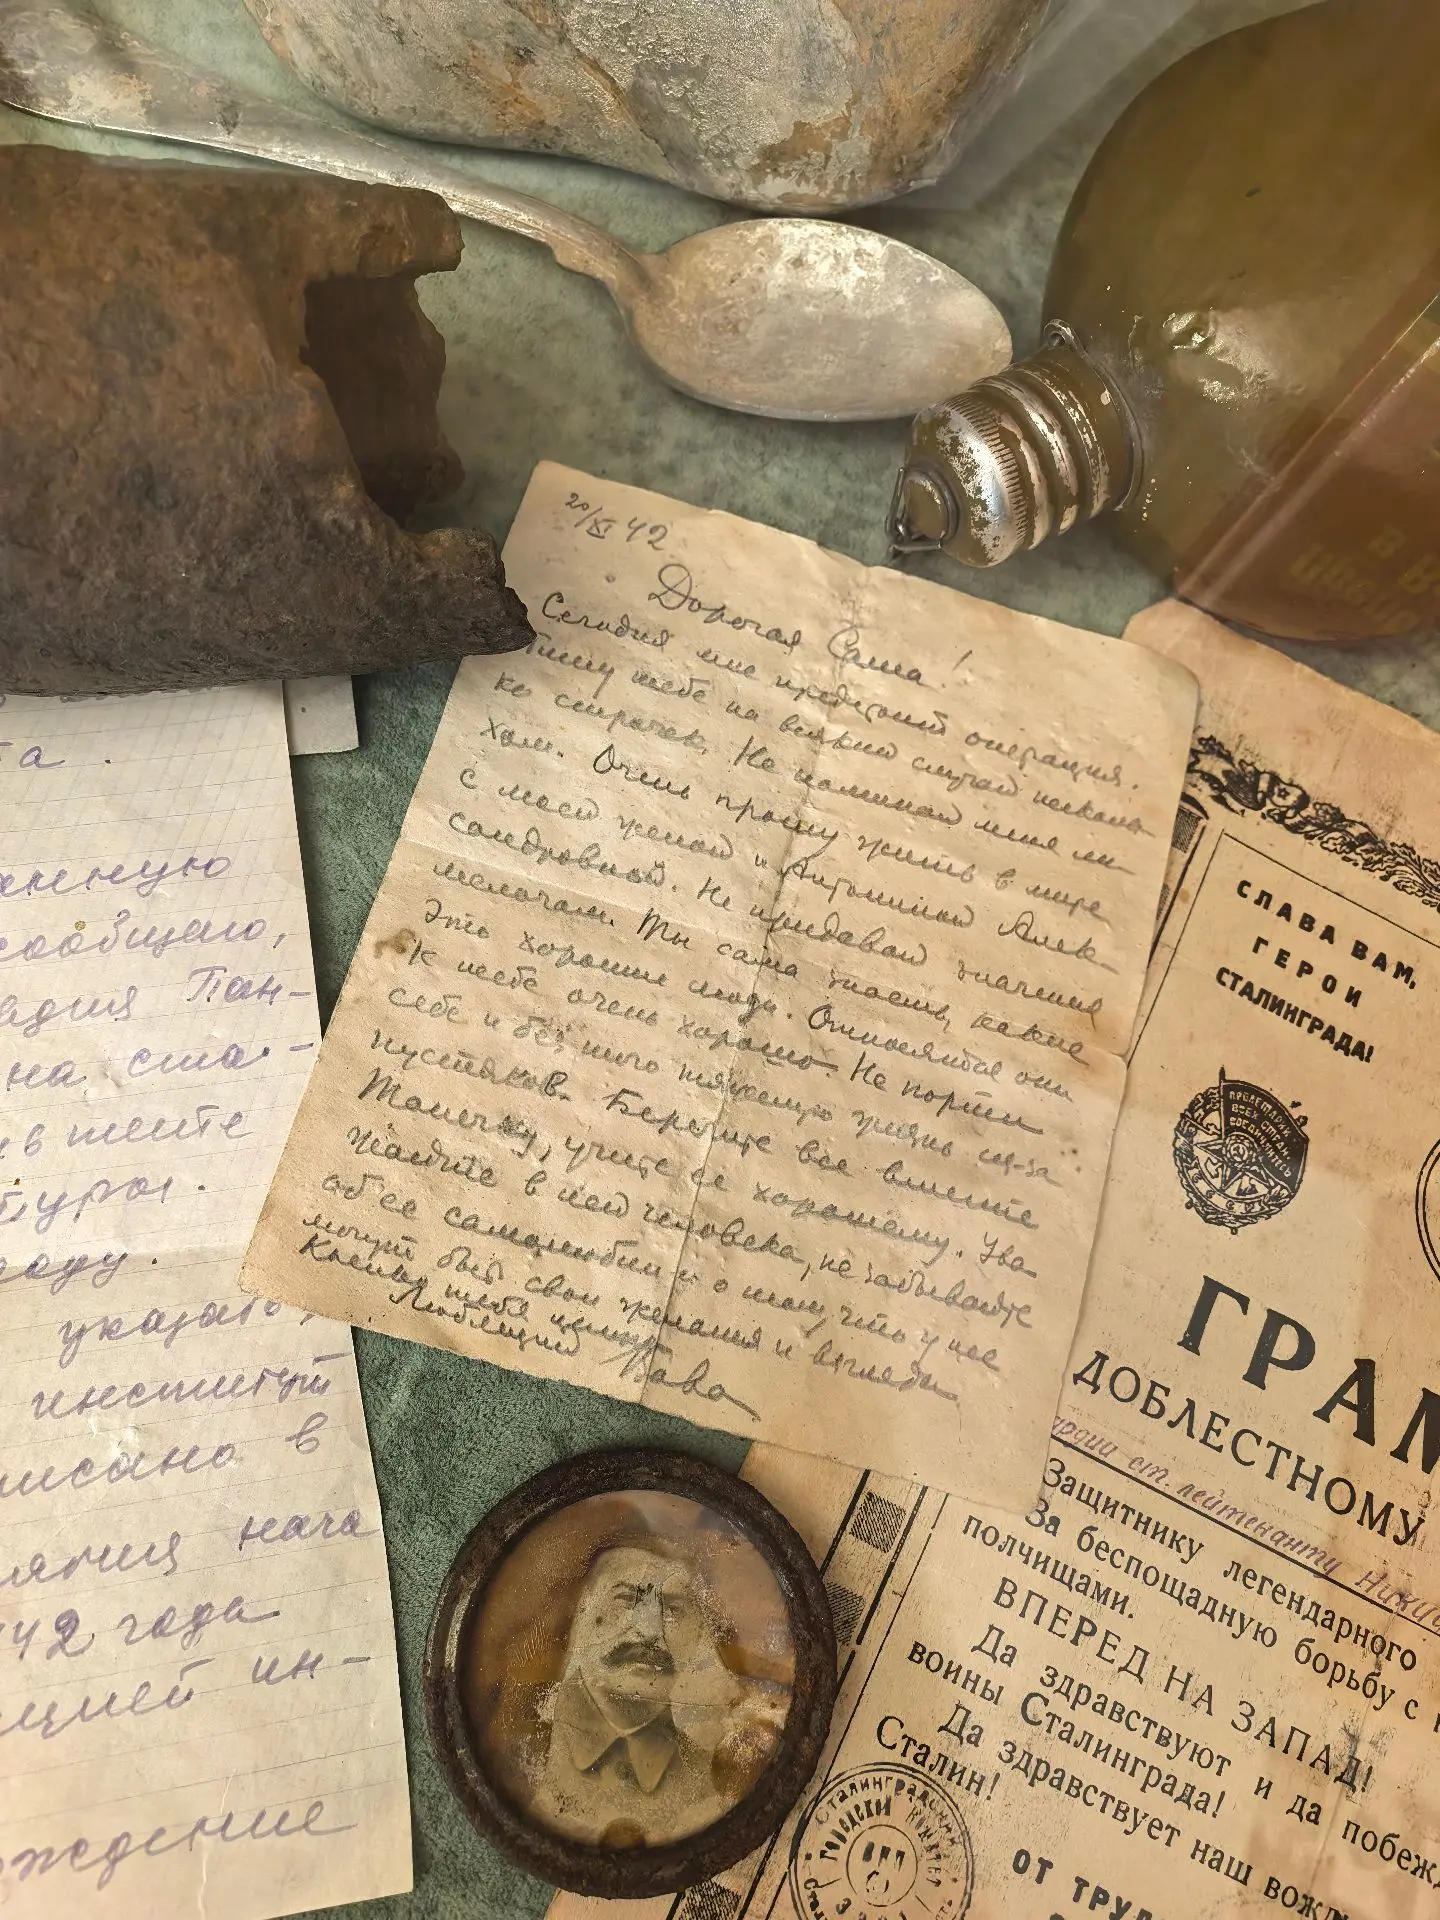 20/XI 42
Дорогая Саша!
Сегодня мне предстоит операция.
Пишу тебе на всякий случай несколь-
ко строчек. Не поминай меня ли-
хом. Очень прошу жить в мире
с моей женой и Антониной Алек-
сандровной. Не придавай значения
мелочам. Ты сама знаешь, какие
это хорошие люди. Относятся они
к тебе очень хорошо. Не порти
себе и без того тяжелую жизнь из-за
пустяков. Берегите все вместе
Танечку, учите ее хорошему. Ува
жайте в ней человека, не забывайте
об ее самолюбии и о том, что у нее
могут быть свои желания и взгляды
Крепко тебя целую
Любящий Вава
та.
анную
сообщаю,
Пан-
на ста-
туры.
году.
указать,
институт
писано в
нача
42 года
ин-
ждение
СЛАВА ВАМ,
ГЕРОИ
СТАЛИНГРАДА!
ПРОЛЕТАРИИ
ВСЕХ СТРАН
СОЕДИНЯЙТЕСЬ
СССР
ГРАМ
ДОБЛЕСТНОМУ
ст. лейтенанту
Защитнику легендарного
За беспощадную борьбу с
полчищами.
ВПЕРЕД НА ЗАПАД!
Да здравствуют и да побежд
воины Сталинграда!
Да здравствует наш вожд
Сталин!
ОТ ТРУ
Сталинградский
Городской Комитет